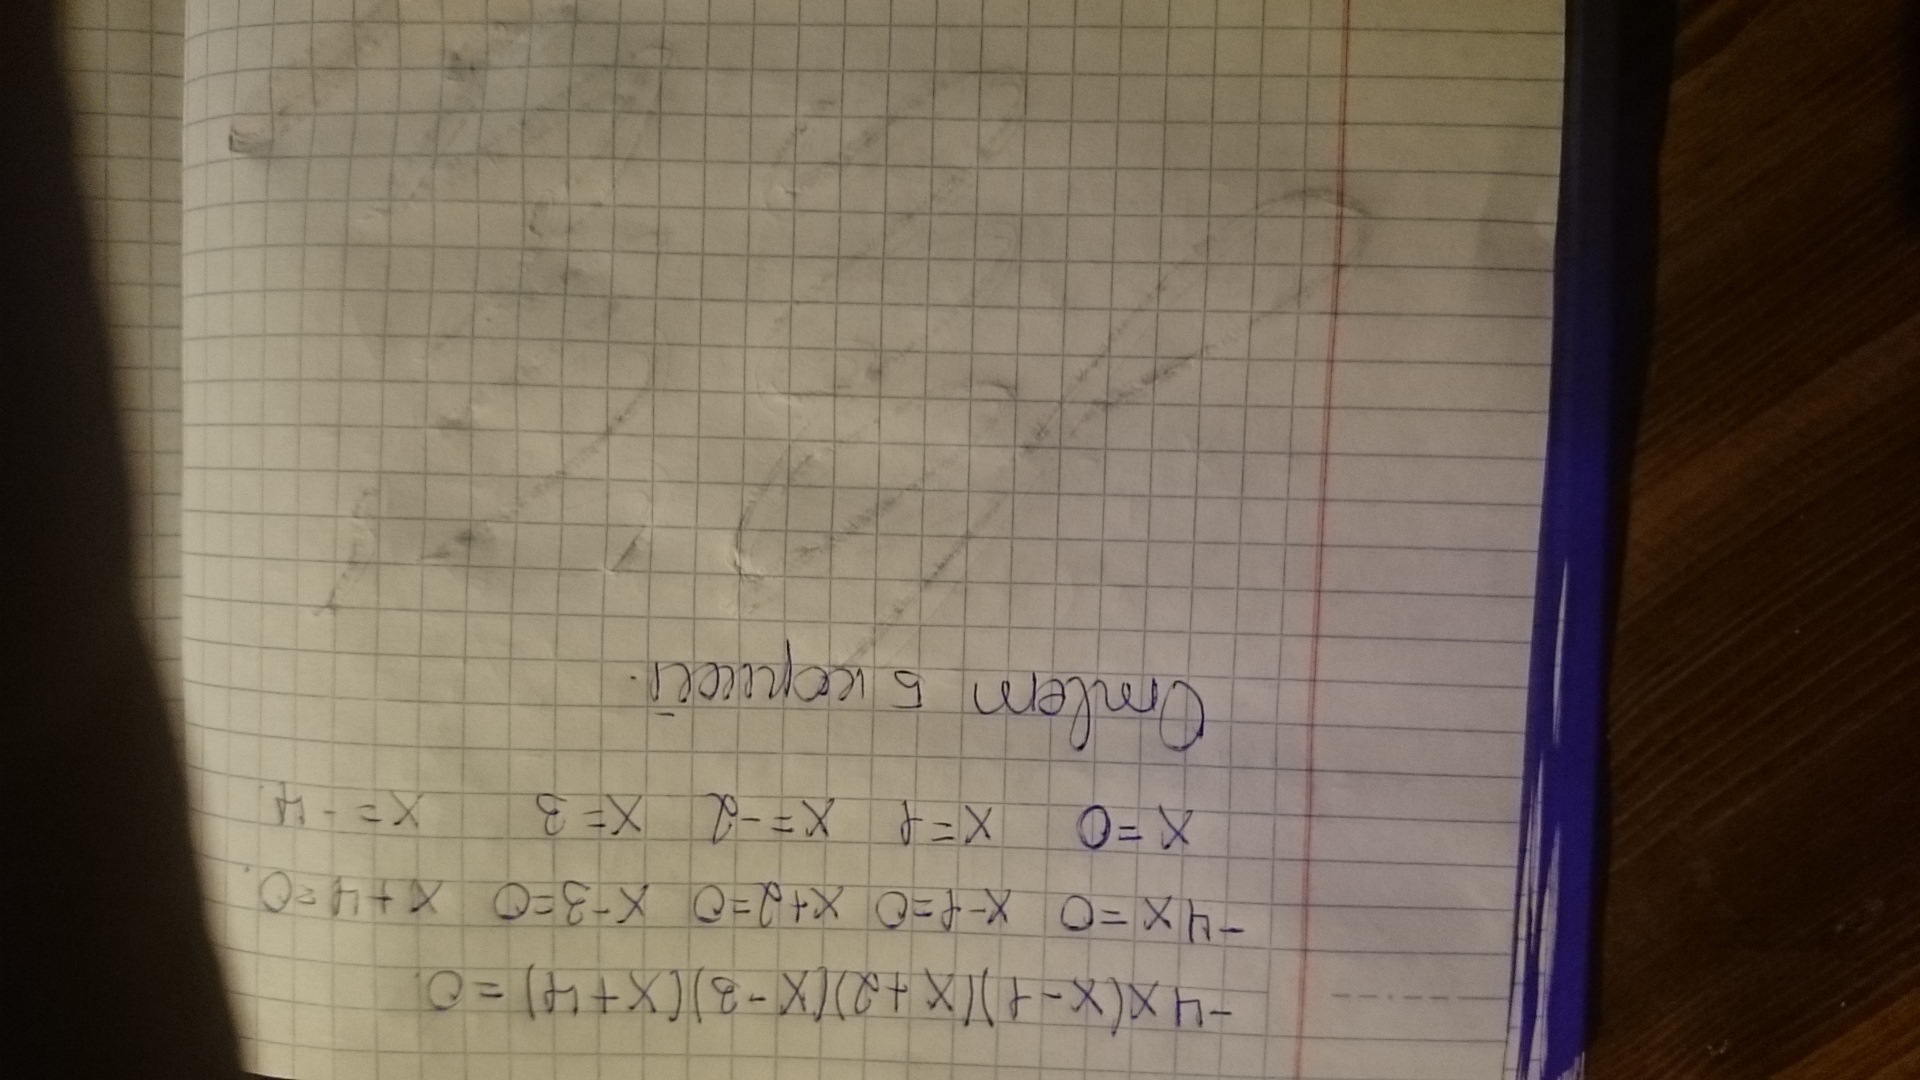 -4x(x-1)(x+2)(x-3)(x+4)=0.
-4x=0 x-1=0 x+2=0 x-3=0 x+4=0.
x=0 x=1 x=-2 x=3 x=-4.
Ответ 5 корней.